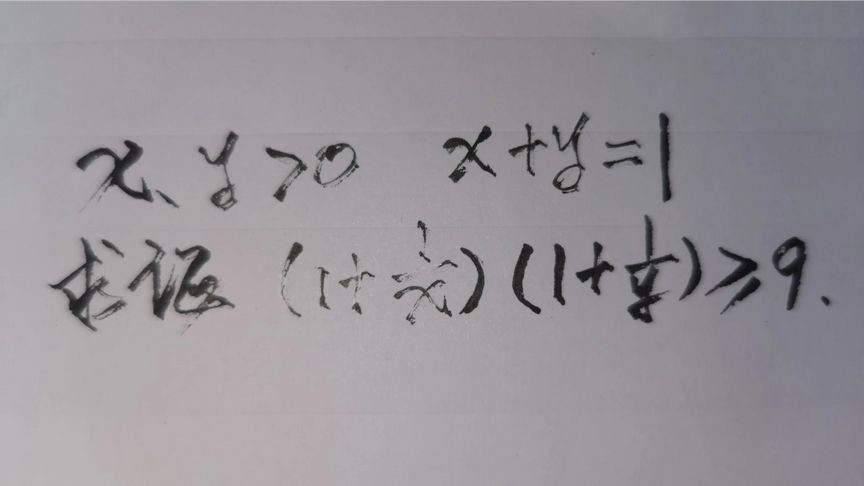 x、y>0 x+y=1
求证 (1+1/x)(1+1/y)≥9.